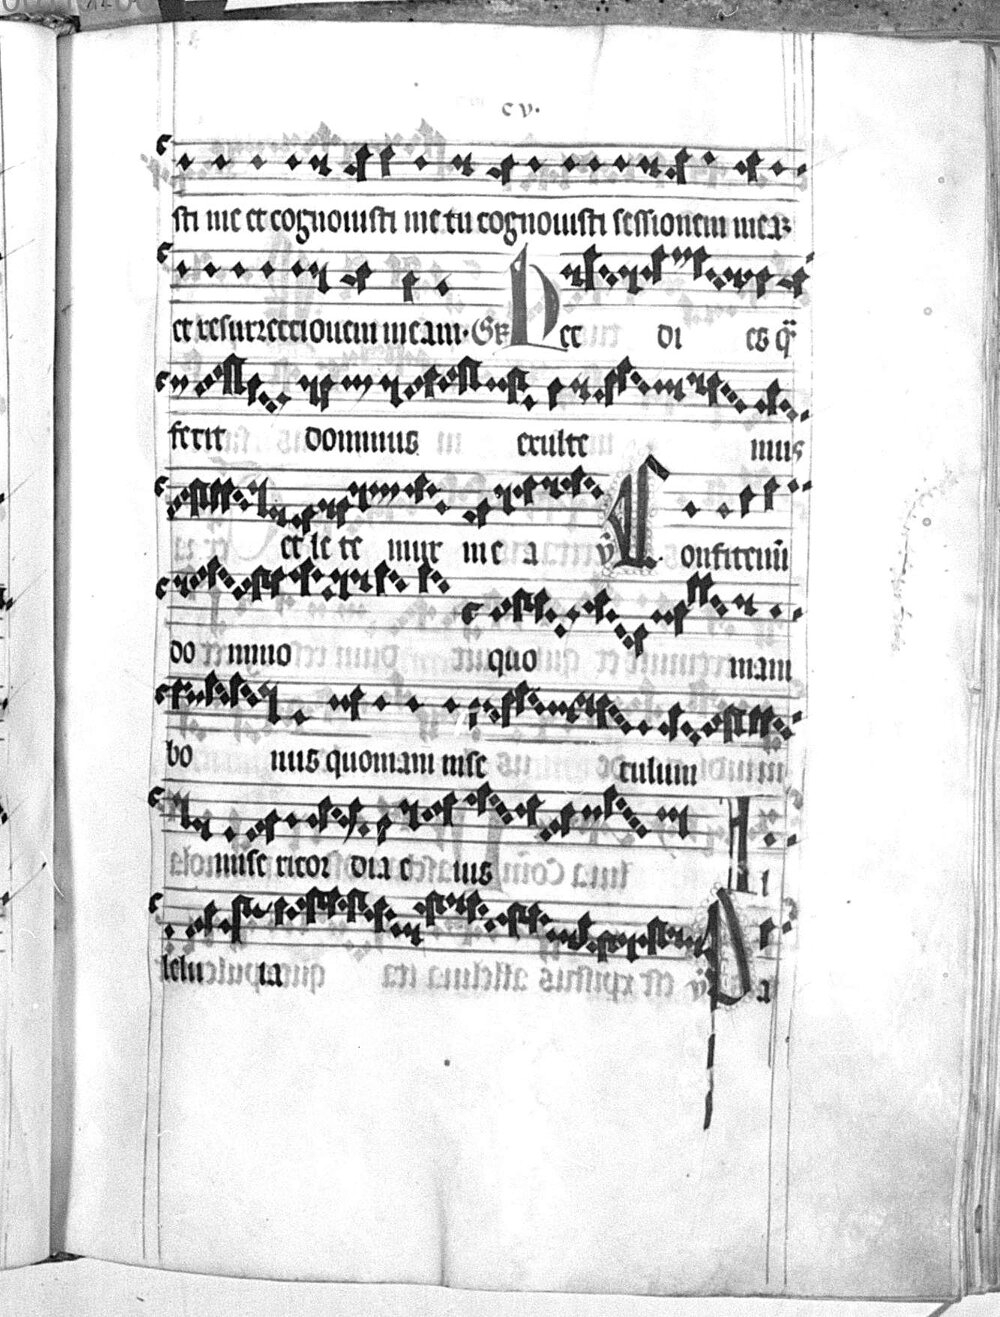 cv.
sti me et cognouisti me tu cognouisti sessionem mea
et resurrectionem meam. Gr Hec di es q̄
fecit dominus exulte mus
et le te mur in e a ℣ Confitemi
do mino quo niam
bo nus quoniam in se culum
mise ricor dia e ius Al
lelu ia ℣ Pa